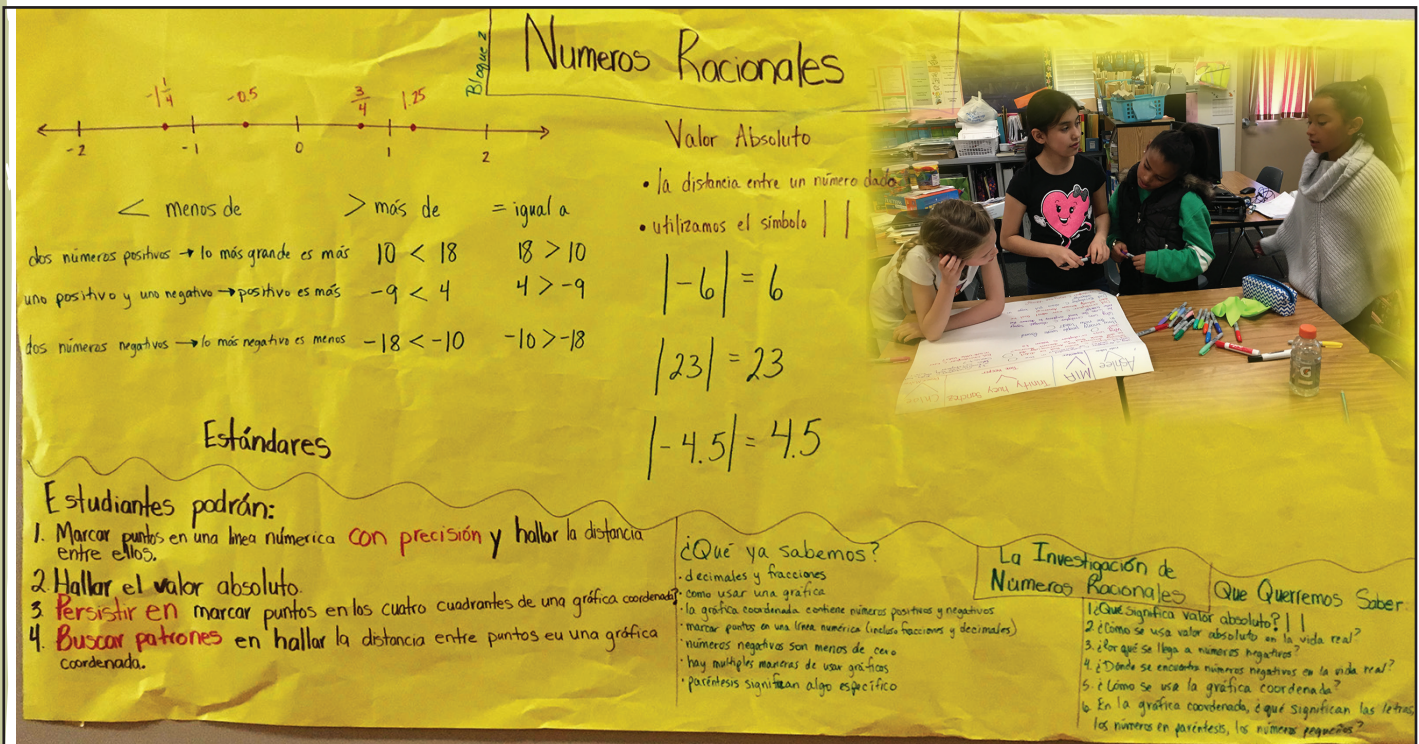 Bloque 2
Numeros Racionales
-1 1/4 -0.5 3/4 1.25
-2 -1 0 1 2
< menos de > más de = igual a
dos números positivos → lo más grande es más 10 < 18 18 > 10
uno positivo y uno negativo → positivo es más -9 < 4 4 > -9
dos números negativos → lo más negativo es menos -18 < -10 -10 > -18
Valor Absoluto
• la distancia entre un número dado
• utilizamos el símbolo | |
|-6| = 6
|23| = 23
|-4.5| = 4.5
Estándares
Estudiantes podrán:
1. Marcar puntos en una linea númerica con precisión y hallar la distancia
entre ellos.
2. Hallar el valor absoluto.
3. Persistir en marcar puntos en los cuatro cuadrantes de una gráfica coordenada.
4. Buscar patrones en hallar la distancia entre puntos eu una gráfica
coordenada.
¿Qué ya sabemos?
• decimales y fracciones
• como usar una gráfica
• la gráfica coordenada contiene números positivos y negativos
• marcar puntos en una línea numérica (incluso fracciones y decimales)
• números negativos son menos de cero
• hay multiples maneras de usar gráficas
• paréntesis significan algo específico
La Investigación de
Numeros Racionales
Que Querremos Saber
1. ¿Qué significa valor absoluto? | |
2. ¿Cómo se usa valor absoluto en la vida real?
3. ¿Por qué se llega a números negativos?
4. ¿Dónde se encuentra números negativos en la vida real?
5. ¿Cómo se usa la gráfica coordenada?
6. En la gráfica coordenada, ¿qué significan las letras,
los números en paréntesis, los números pequeños?
Ashlee
MIA
Trinity
G